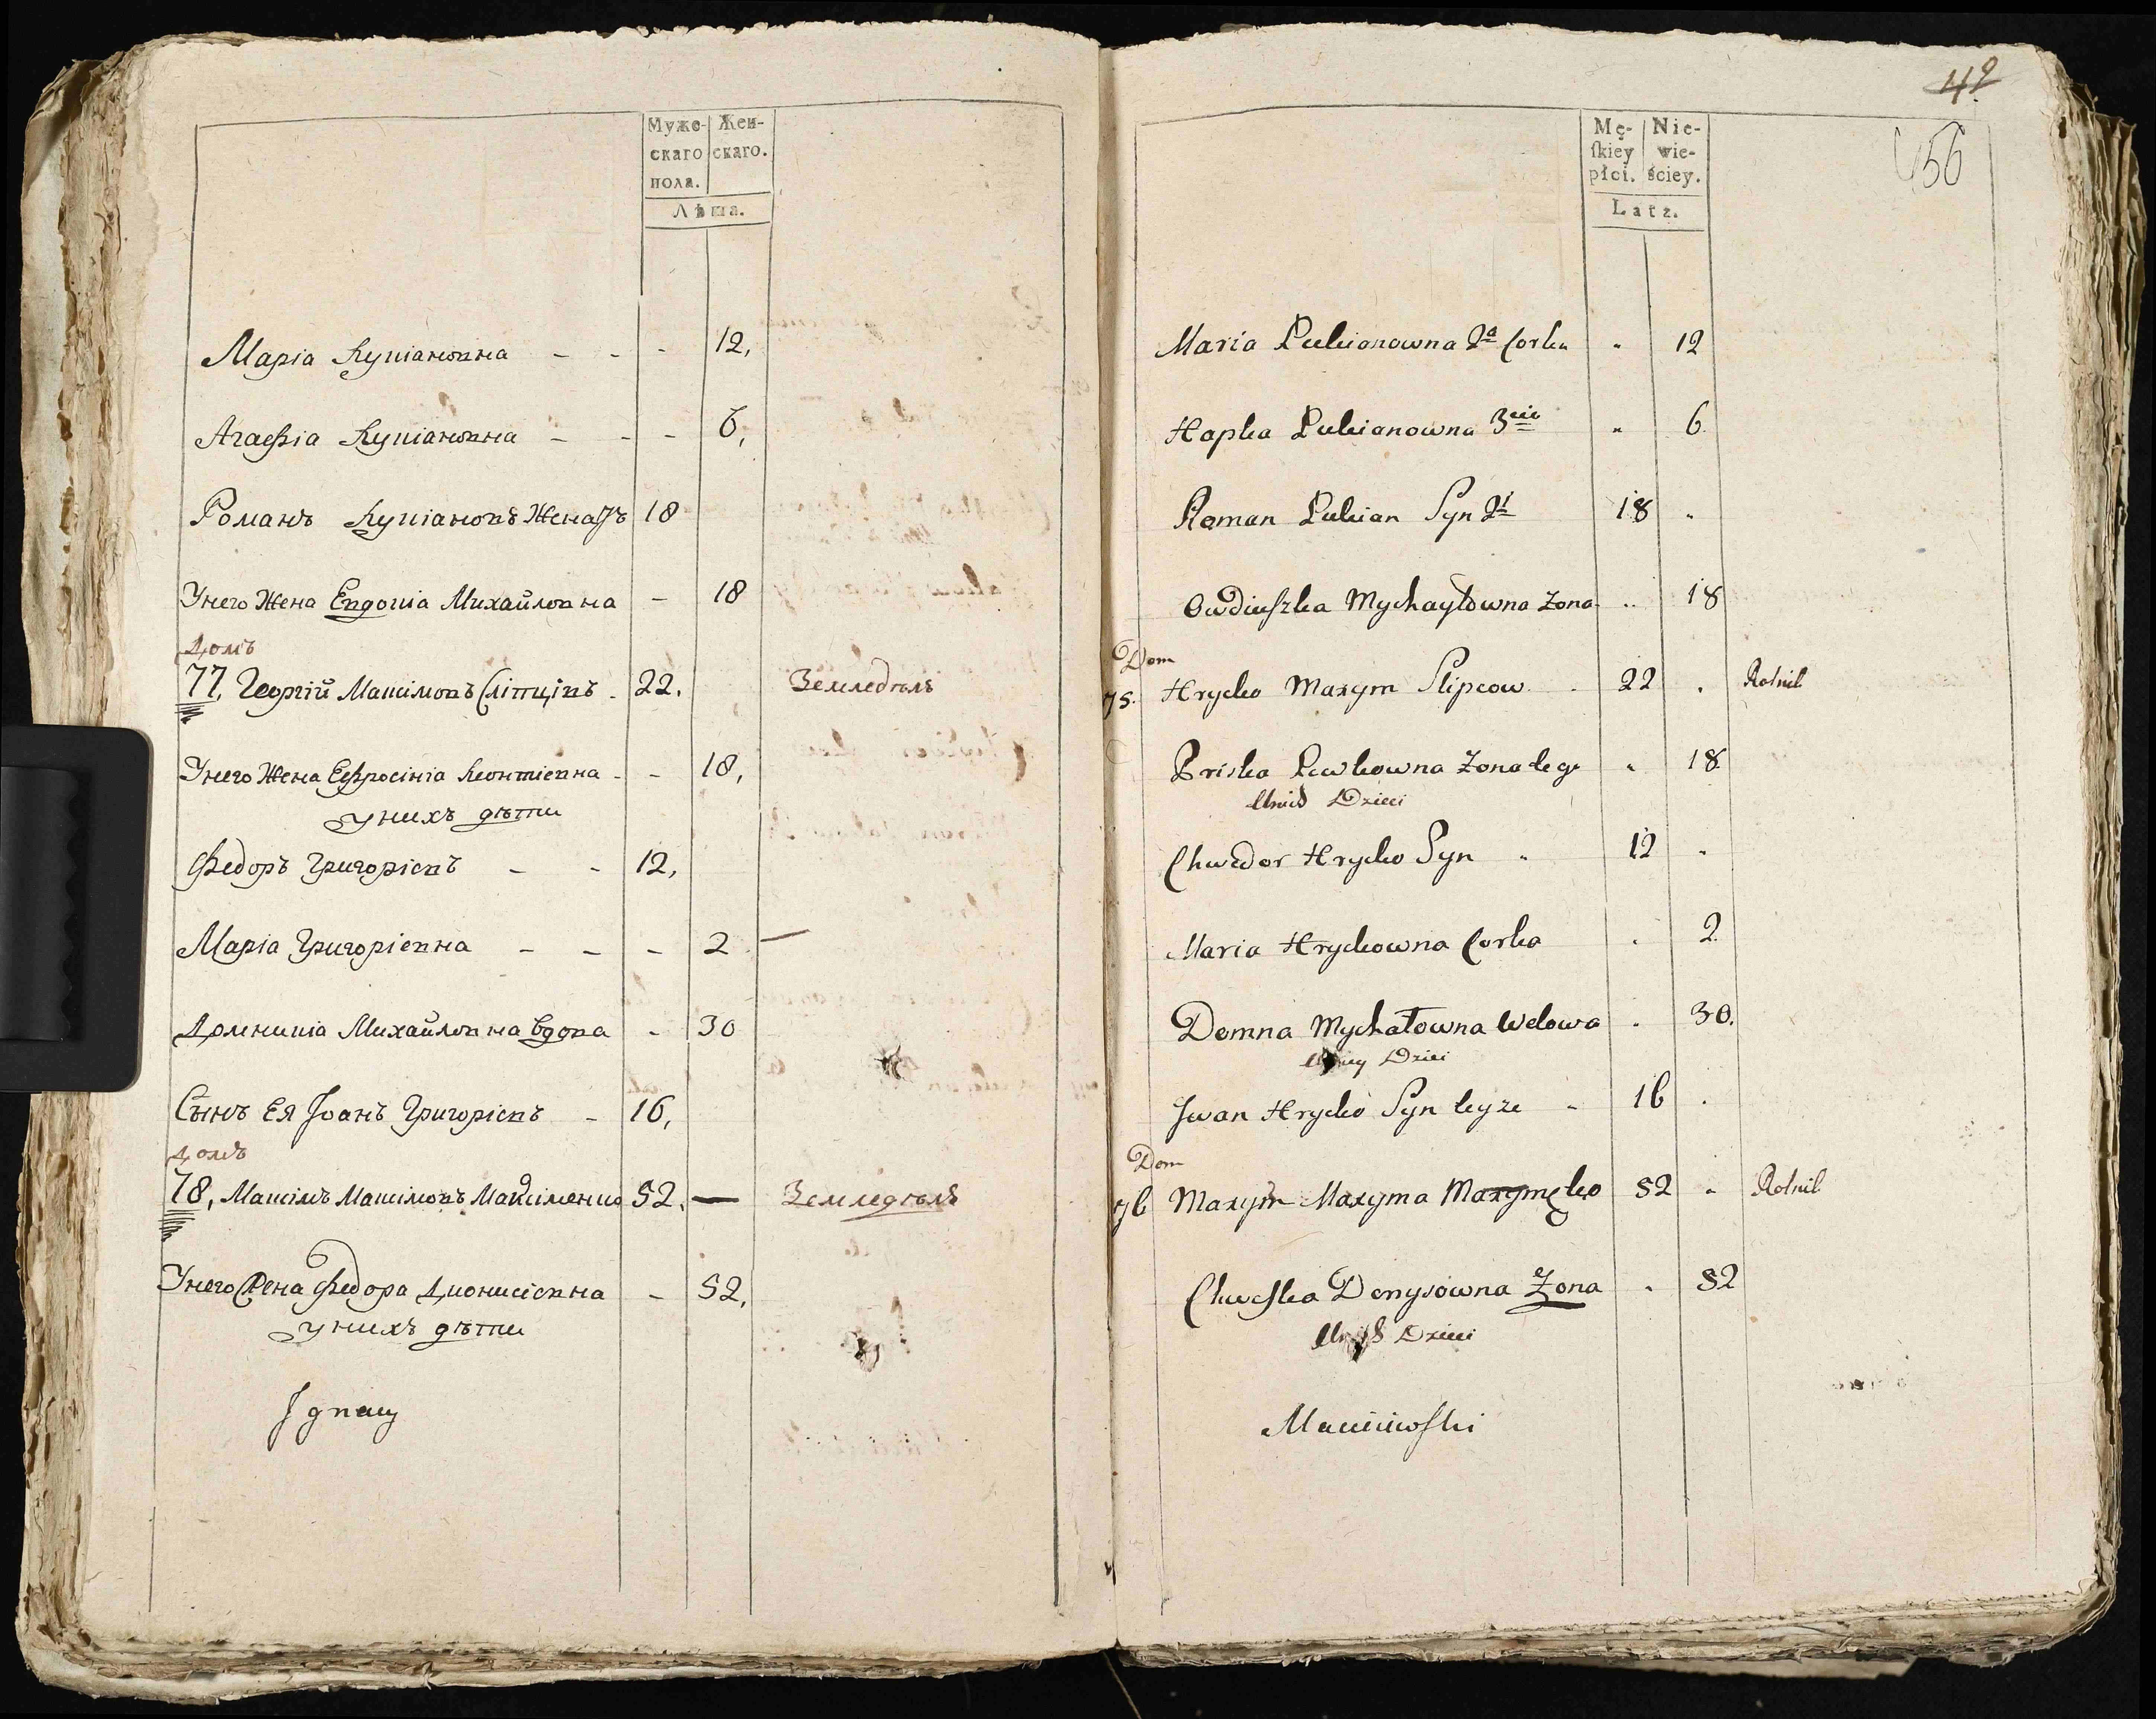 Муже- Жен-
скаго скаго.
пола.
Лѣта.
Марія Лукіановна - - - 12,
Агафія Лукіановна - - - 6,
Романъ Лукіановъ Женатъ 18
Унего Жена Евдокіа Михайловна - 18
Домъ
77, Георгій Максімовъ Сліпцівъ - 22, Земледѣлъ
Унего Жена Ефросініа Леонтіевна - - 18,
Унихъ дѣти
Федоръ Григоріевъ - - 12,
Маріа Григоріевна - - - 2 —
Домникіа Михайловна вдова - 30
Сынъ Ея Іоанъ Григоріевъ - 16,
Домъ
78, Максімъ Максімовъ Максіменко 52, — Земледѣлъ
Унего Жена Федора Дионисіевна - 52,
Унихъ дѣти
Jgnacy
49
456
Mę- Nie-
ſkiey wie-
płci. ściey.
Latz.
Maria Lukianowna 2a Corka " 12
Hapka Lukianowna 3cia " 6
Roman Lukian Syn 2i 18 "
Owdiuszka Mychayłowna Zona " 18
Dom
75. Hrycko Maxym Slipcow - 22 . Rolnik
Priska Lewkowna Zona Jego " 18
Unich Dzieci
Chwedor Hrycko Syn " 12 "
Maria Hryckowna Corka . 2
Domna Mychałowna Wdowa . 30.
Uniey Dzieci
Jwan Hrycko Syn Jeyze - 16 .
Dom
76 Maxym Maxyma Maxymęko 52 " Rolnik
Chweska Denysowna Zona . 52
Unich Dzieci
Maciiewski